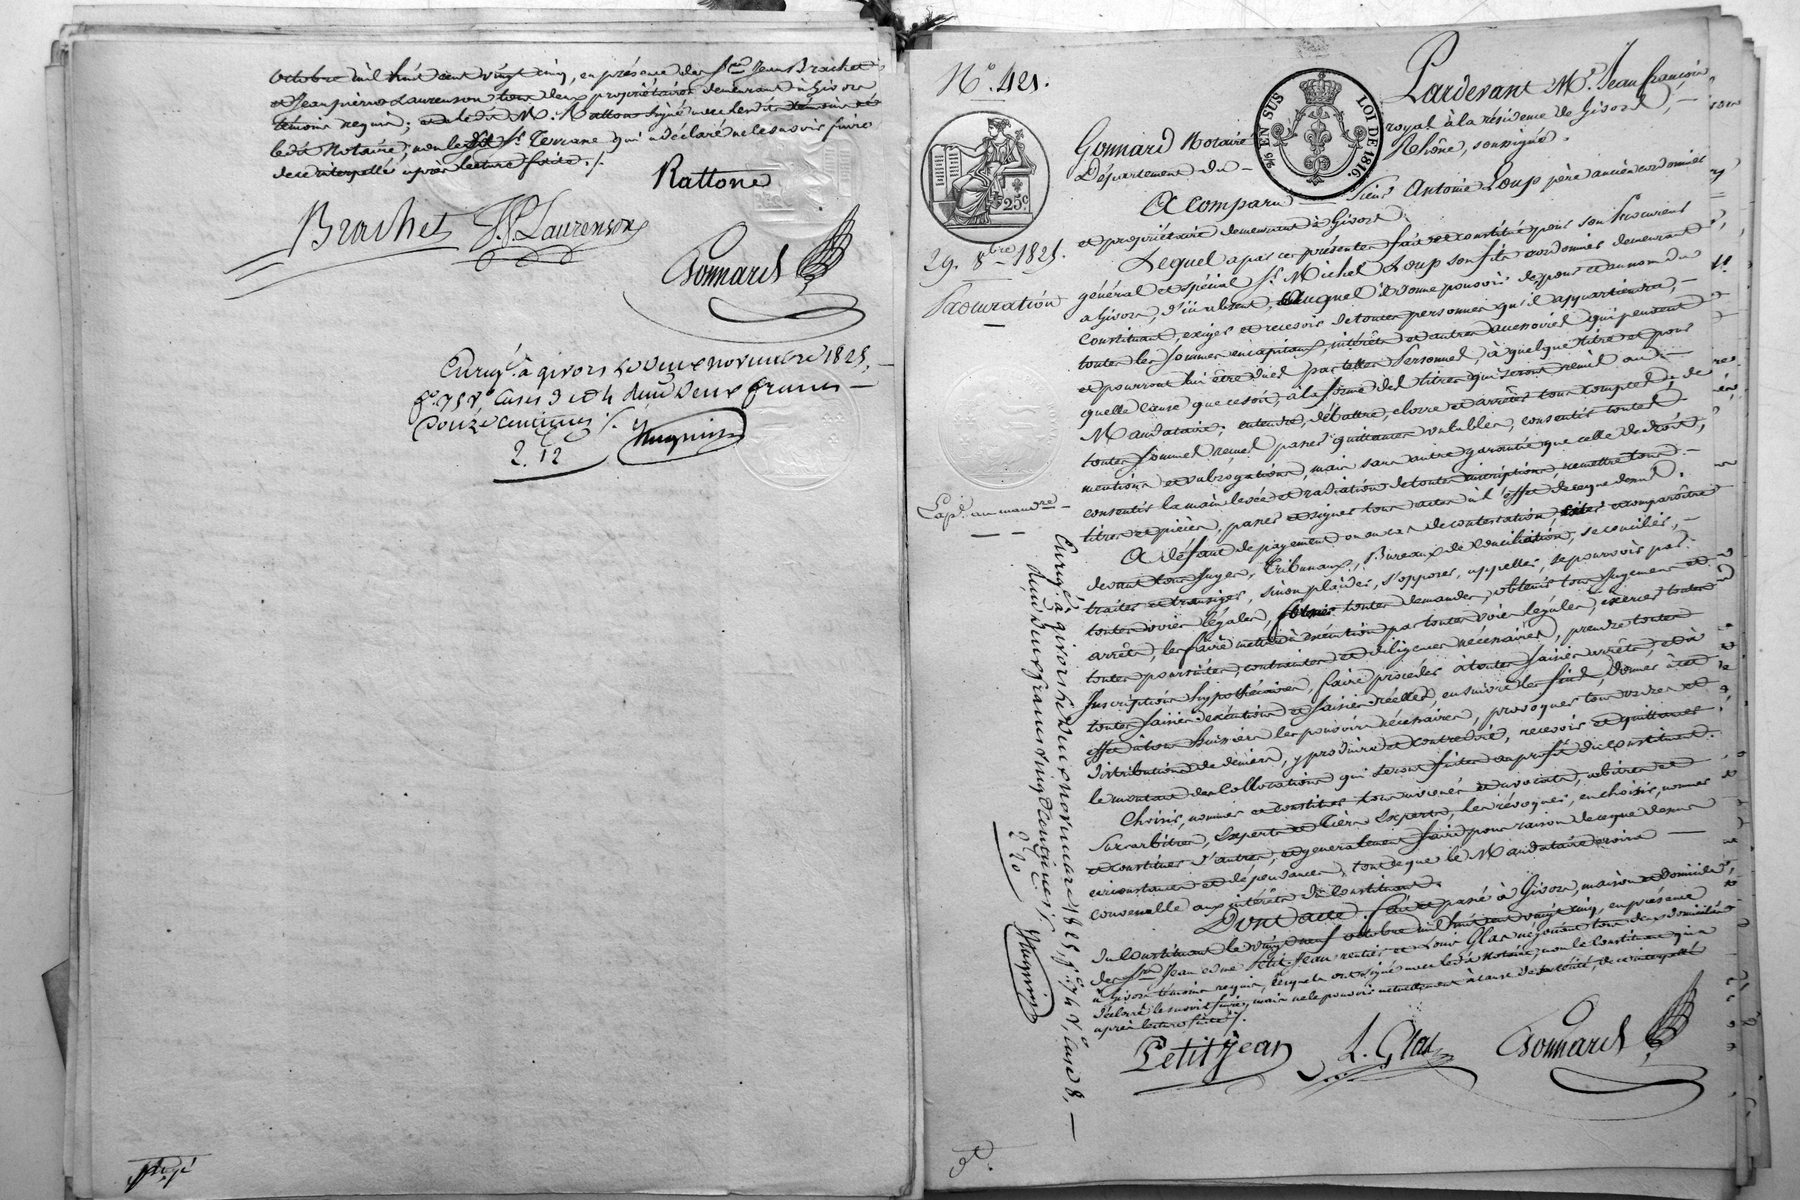 octobre mil huit cent vingt cinq, en présence des Srs Jean Brachet
et Jean pierre Laurenson tous deux propriétaires demeurant à Givors
témoins requis; et ledit Mr. Rattone signé avec les témoins et
ledit Notaire, non ledit Sr. Terrane qui a déclaré ne le savoir faire
de ce interpellé après lecture faite ./.
Rattone
Brachet J. P. Laurenson
Gonnard
Enregé. à givors le deux novembre 1825,
fo. 75 Vo. Cases 3 et 4 reçu deux francs
Douze centimes ./.
2. 12 Hugnin
No. 421.
25c
5/6 EN SUS LOI DE 1816.
29. 8bre 1825.
Procuration
Expé. au mandre
Pardevant Me. Jean françois
Gonnard Notaire royal à la résidence de Givors,
Département du Rhône, soussigné.
A comparu Sieur Antoine Loup père ancien cordonnier
et propriétaire demeurant à Givors.
Lequel a par ces présentes fait et constitué pour son Procureur
général et spécial Sr. Michel Loup son fils cordonnier demeurant
à Givors, d'ici absent, auquel il donne pouvoir de pour et au nom du
Constituant, exiger et recevoir de toutes personnes qu'il appartiendra,
toutes les sommes en capitaux, intérêts et autres accessoires qui peuvent
et pourront lui être dues par telles personnes, à quelque titre et pour
quelle cause que ce soit, à la forme des titres qui seront remis au
Mandataire; entendre, débattre, clorre et arrêter tous comptes; de
toutes sommes reçues passer quittances valables, consentir toutes
mentions et subrogations, mais sans autre garantie que celle de droit,
consentir la main levée et radiation de toutes inscriptions, remettre tous
titres et pièces, passer et signer tous actes à l'effet de ce que dessus.
A défaut de payement ou en cas de contestation, citer et comparoître
devant tous Juges, Tribunaux, Bureaux de Conciliation, se concilier,
traiter et transiger, sinon plaider, s'opposer, appeller, se pourvoir par
toutes voies légales, former toutes demandes, obtenir tous Jugemens et
arrêts, les faire mettre à exécution par toutes voies légales, exercer toutes
toutes poursuites, contraintes et diligences nécessaires, prendre toutes
Inscriptions hypothécaires, faire procéder à toutes saisies arrêts, et à
toutes saisies exécutions et saisies réelles, en suivre les fins, donner à cet
effet à tous huissiers les pouvoirs nécessaires, provoquer tous ordres et
distributions de deniers, y produire et contredire, recevoir et quittancer
le montant des Collocations qui seront faites au profit du constituant.
Choisir, nommer et constituer tous avoués et avocats, arbitres et
Surarbitres, Experts et Tiers Experts, les révoquer, en choisir, nommer
et constituer d'autres, et généralement faire pour raison de ce que dessus
circonstances et dépendances, tout ce que le Mandataire croira
convenable aux intérêts du Constituant.
Dont acte. Fait et passé à Givors, maison et domicile,
du Constituant le vingt neuf octobre mil huit cent vingt cinq, en présence
des Srs Jean Petit Jean rentier et Louis Glas négociant tous deux domiciliés
à Givors témoins requis, lesquels ont signé avec ledit Notaire, non le Constituant qui a
déclaré le savoir faire, mais ne le pouvoir actuellement à cause de de ce interpellé
après lecture faite ./.
Petitjean L. Glas Gonnard
Enregé. à givors le deux novembre 1825, fo. 74 Vo. Case 8,
reçu deux francs vingt centimes ./.
2. 20 Hugnin